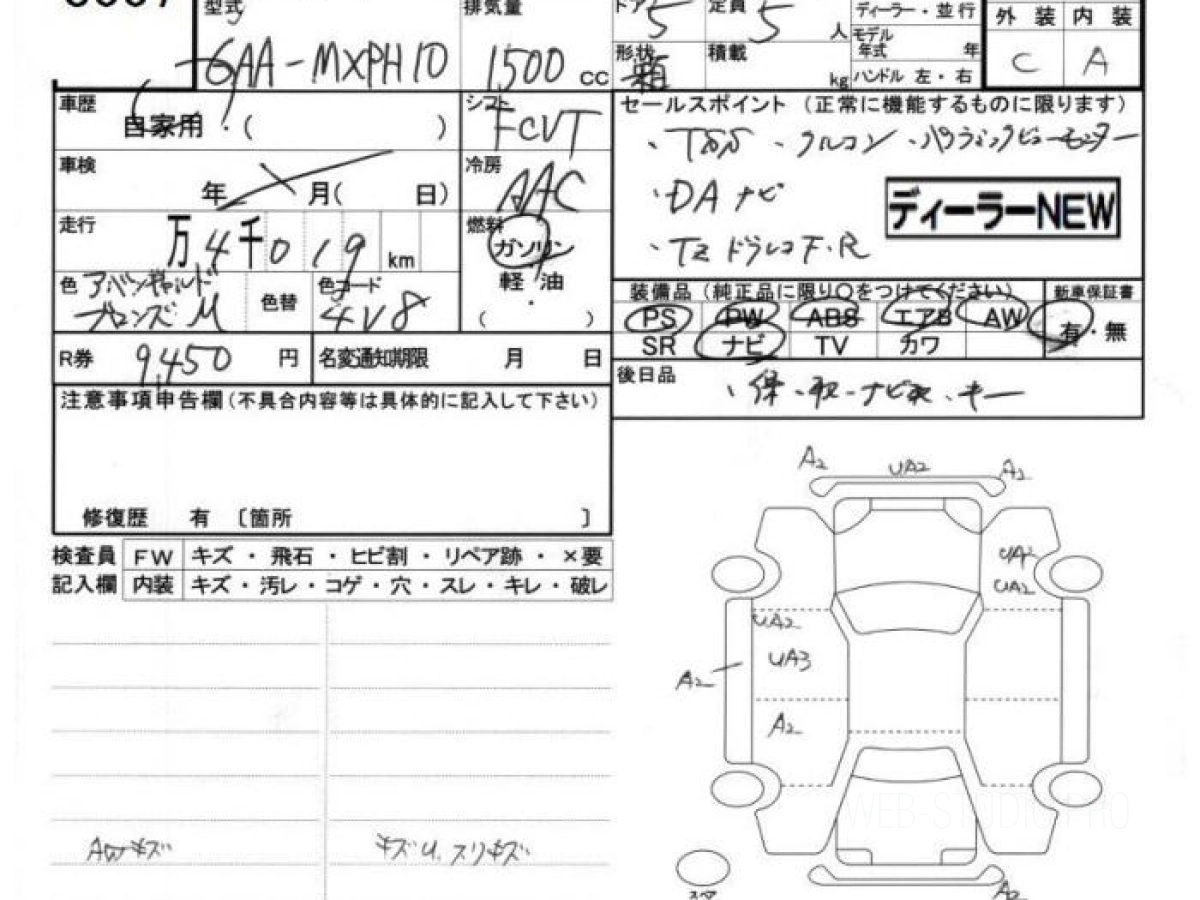 型式 排気量 ドア 5 定員 5 人 ディーラー・並行 外装 内装
6AA-MXPH10 1500 cc 形状 箱 積載 kg モデル年式 年 C A
ハンドル 左・右
車歴 自家用・( ) シフト FCVT セールスポイント (正常に機能するものに限ります)
・TSS ・クルコン ・パノラミックビューモニター
車検 年 月( 日) 冷房 AAC ・DAナビ ディーラーNEW
走行 万 4 千 0 1 9 km 燃料 ガソリン ・TZ ドラレコF.R
軽・油
・
( )
色 アバンギャルドブロンズM 色替 色コード 4V8
装備品 (純正品に限り〇をつけてください) 新車保証書
PS PW ABS エアB AW 有・無
SR ナビ TV カワ
R券 9,450 円 名変通知期限 月 日
後日品 、保、取、ナビ取、キー
注意事項申告欄(不具合内容等は具体的に記入して下さい)
修復歴 有 〔箇所 〕
検査員 FW キズ・飛石・ヒビ割・リペア跡・×要
記入欄 内装 キズ・汚レ・コゲ・穴・スレ・キレ・破レ
A2 UA2 A2
UA2
UA2
UA2
UA3
A2
A2
AWキズ キズU.スリキズ
WEB-STUDIO.PRO
スペア
A2